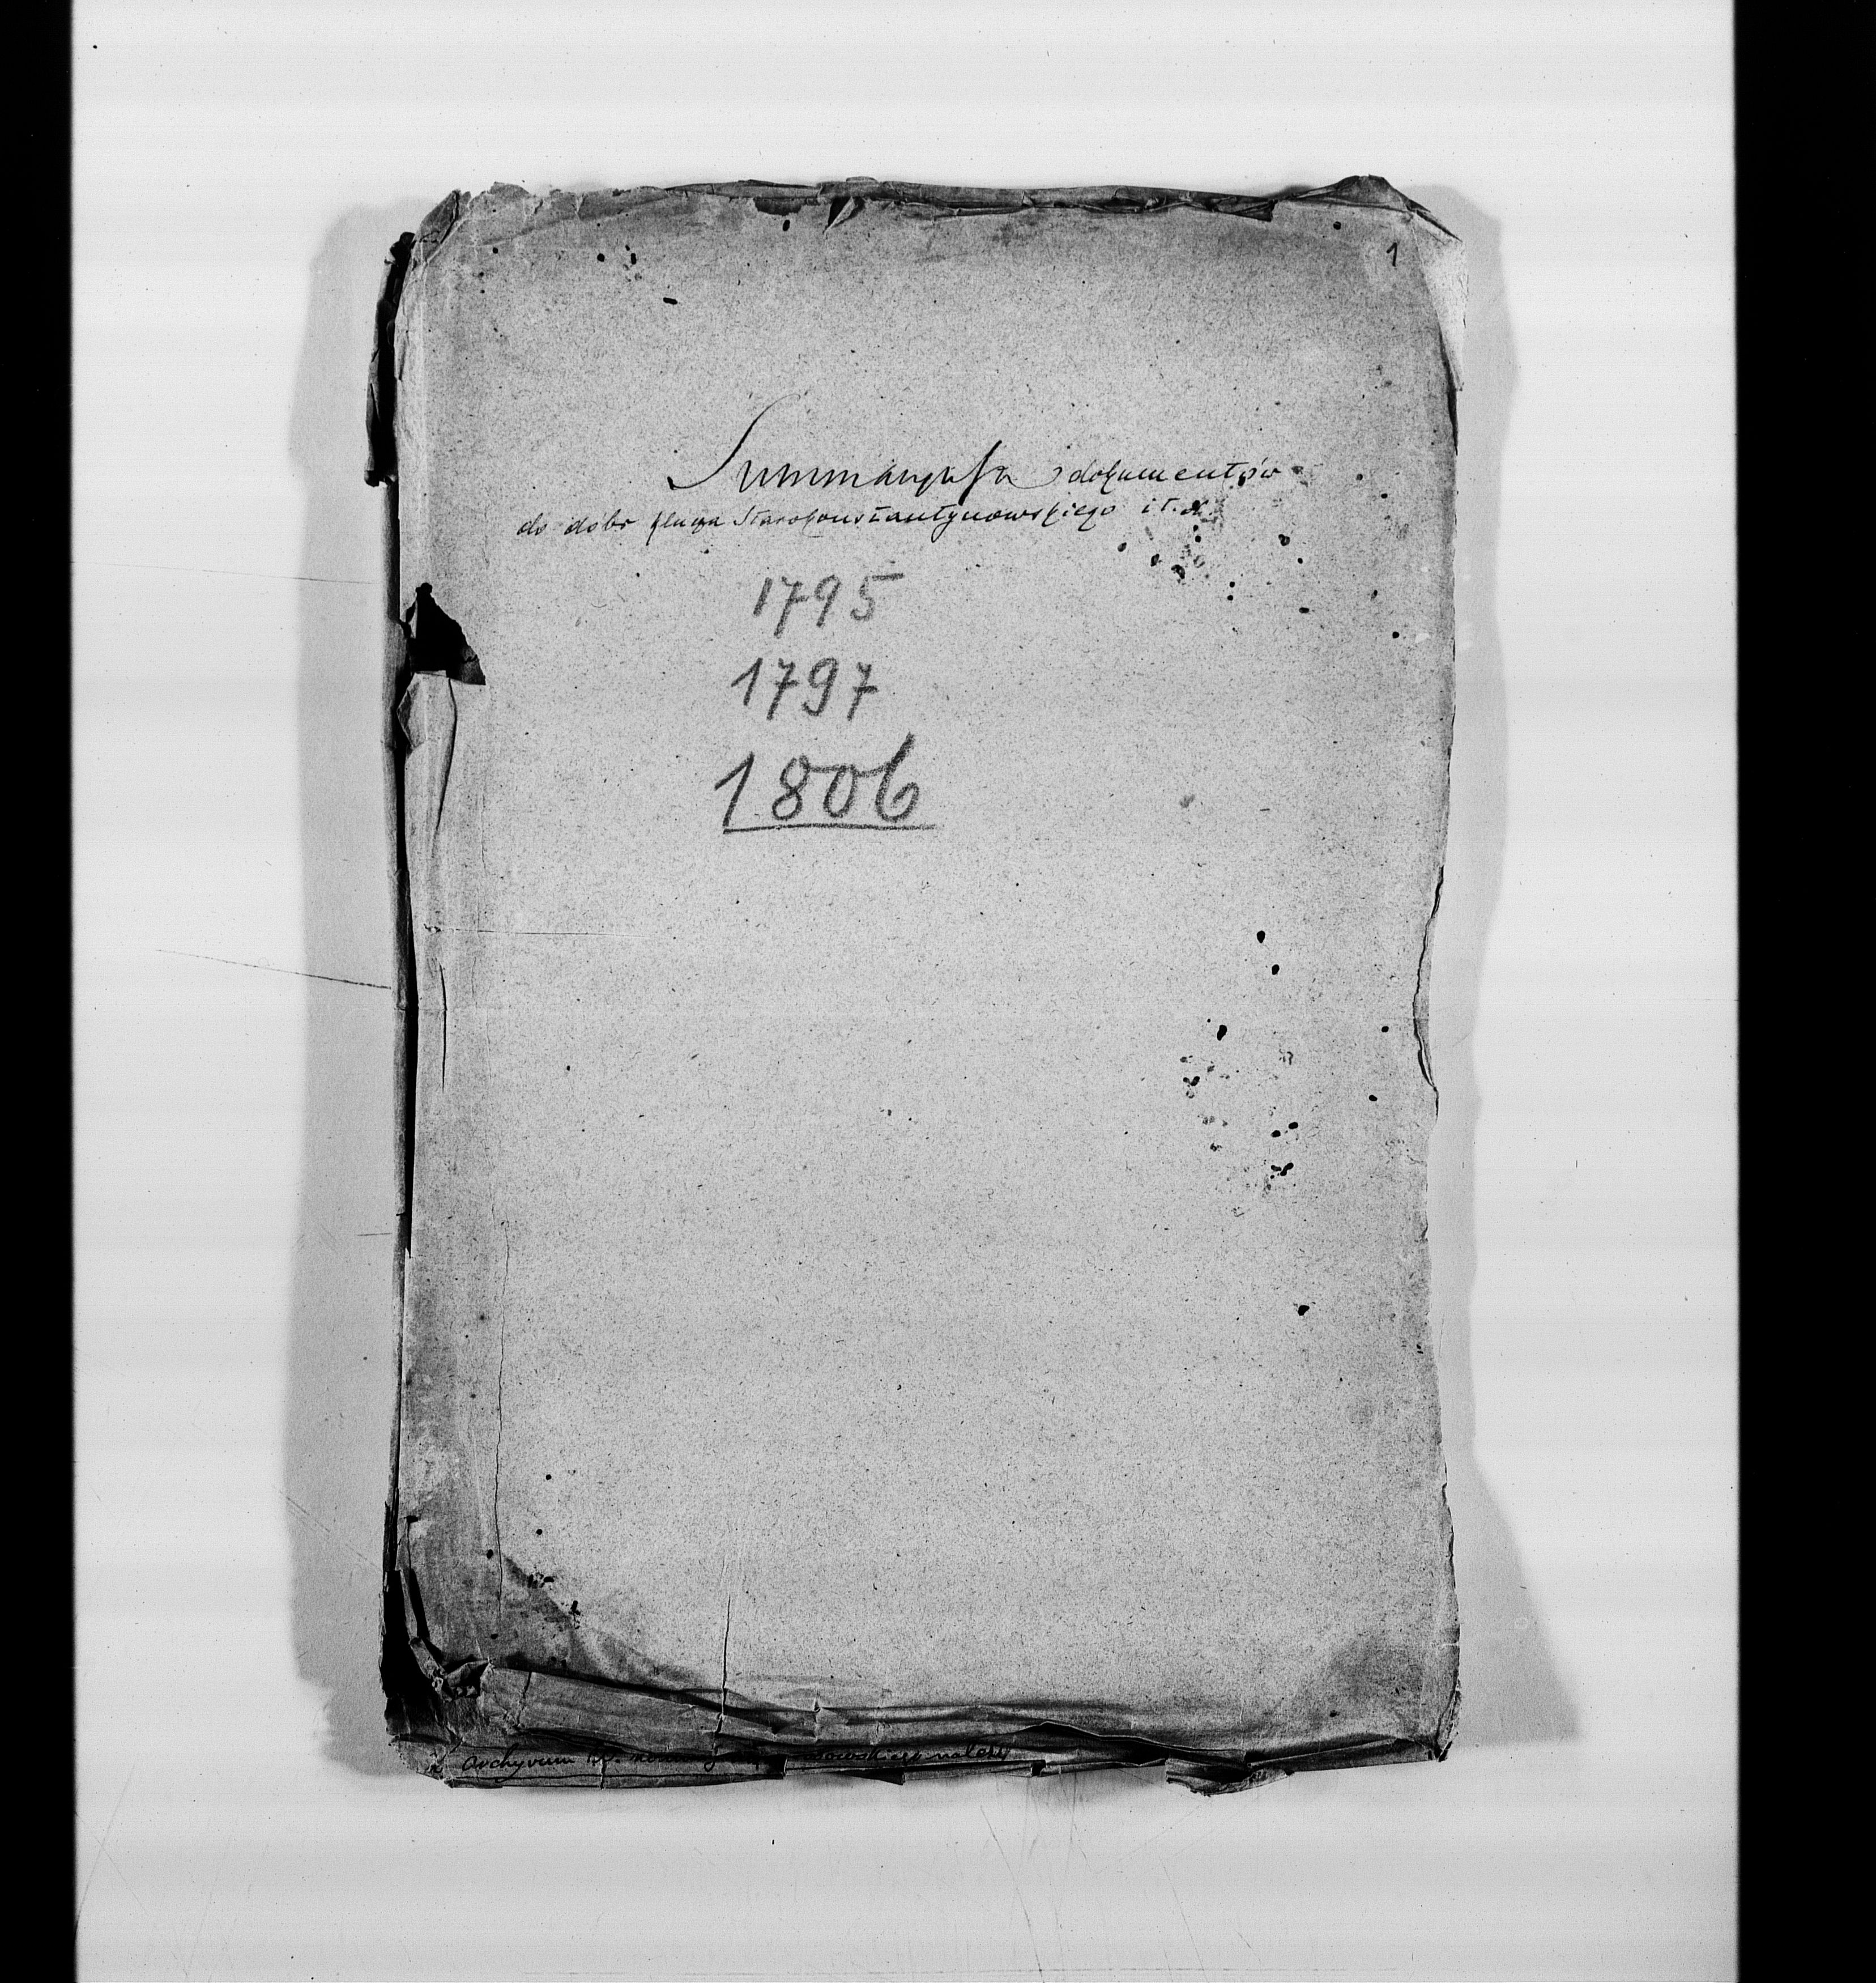 1
Summaryusza dokumentów
do dóbr klucza Starokonstantynowskiego i t. d.
1795
1797
1806
archyvum należy